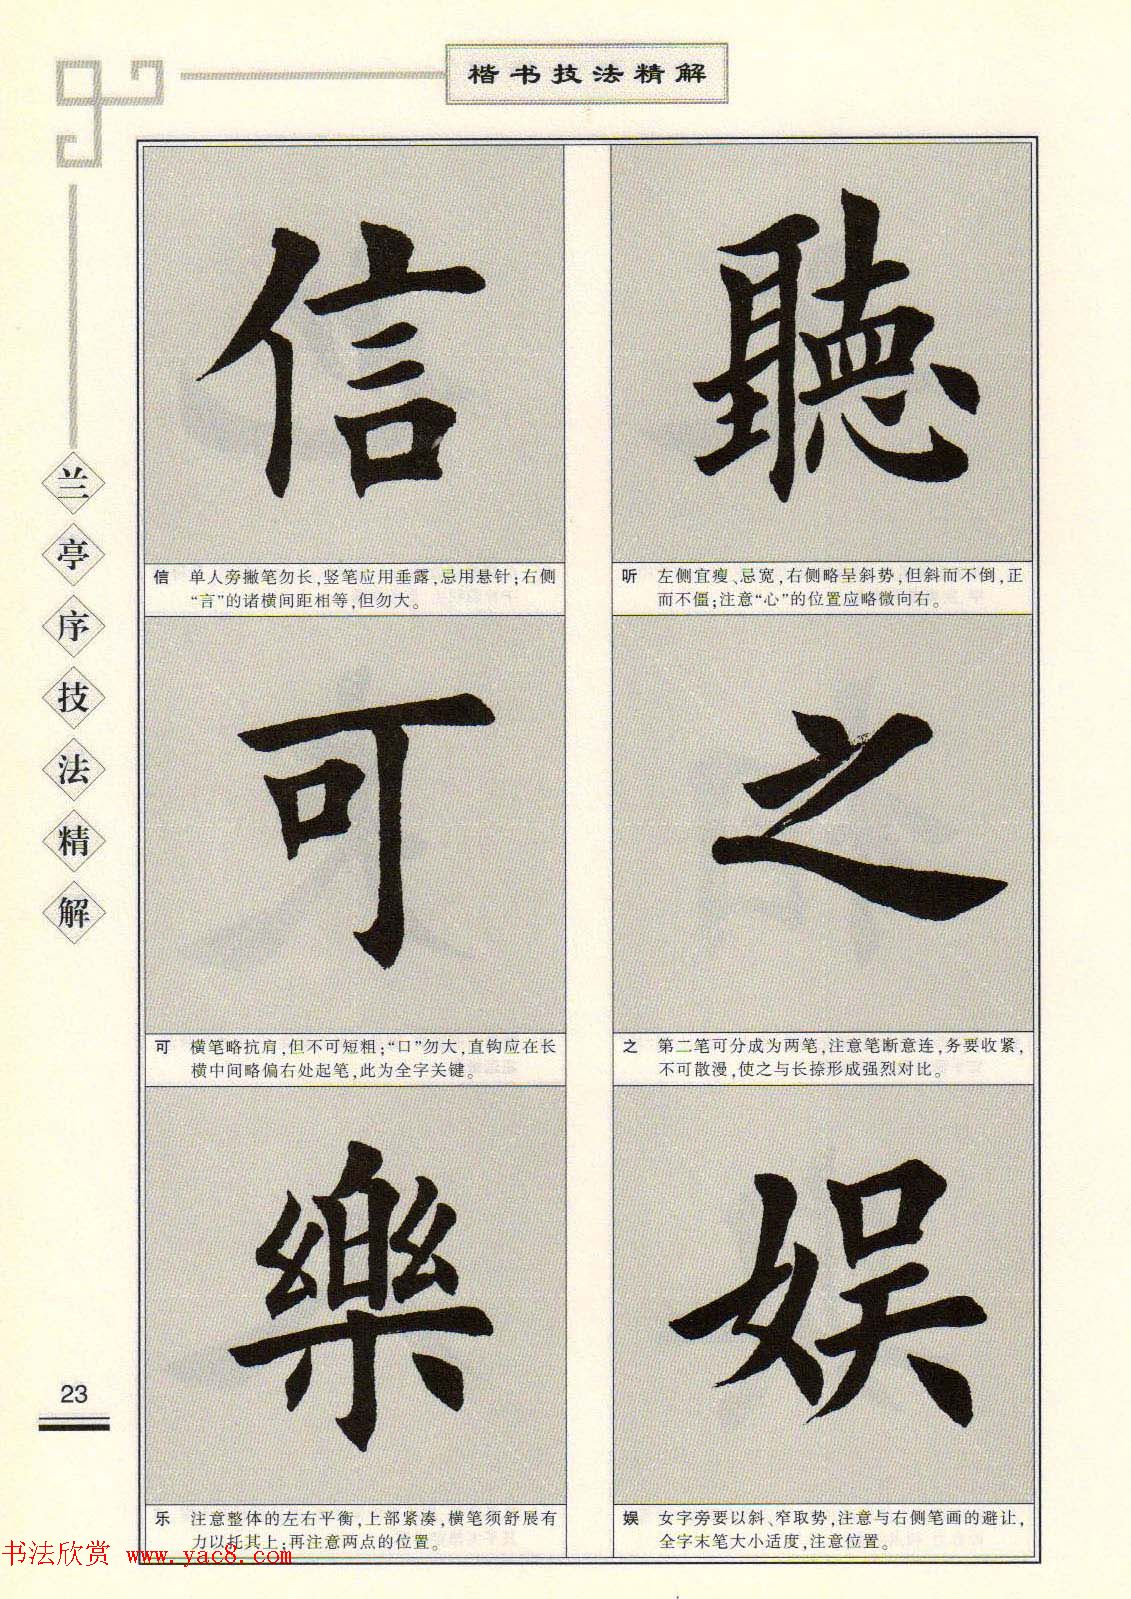 楷书技法精解
兰亭序技法精解
聽
听 左侧宜瘦、忌宽，右侧略呈斜势，但斜而不倒，正
而不僵；注意“心”的位置应略微向右。
之
之 第二笔可分成为两笔，注意笔断意连，务要收紧，
不可散漫，使之与长捺形成强烈对比。
娱
娱 女字旁要以斜、窄取势，注意与右侧笔画的避让，
全字末笔大小适度，注意位置。
信
信 单人旁撇笔勿长，竖笔应用垂露，忌用悬针；右侧
“言”的诸横间距相等，但勿大。
可
可 横笔略抗肩，但不可短粗；“口”勿大，直钩应在长
横中间略偏右处起笔，此为全字关键。
樂
乐 注意整体的左右平衡，上部紧凑，横笔须舒展有
力以托其上；再注意两点的位置。
23
书法欣赏 www.yac8.com